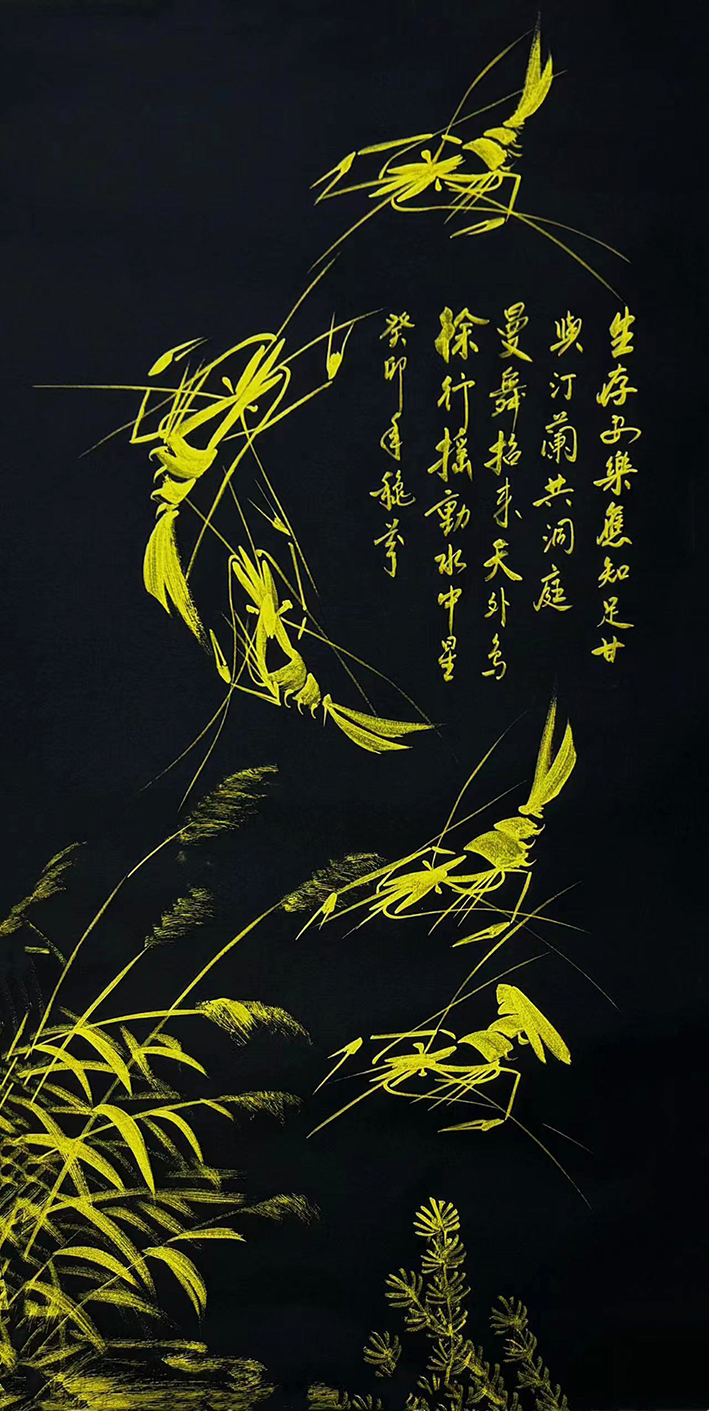 生存安樂應知足甘
與汀蘭共洞庭
曼舞招來天外鳥
徐行摇動水中星
癸卯年穐